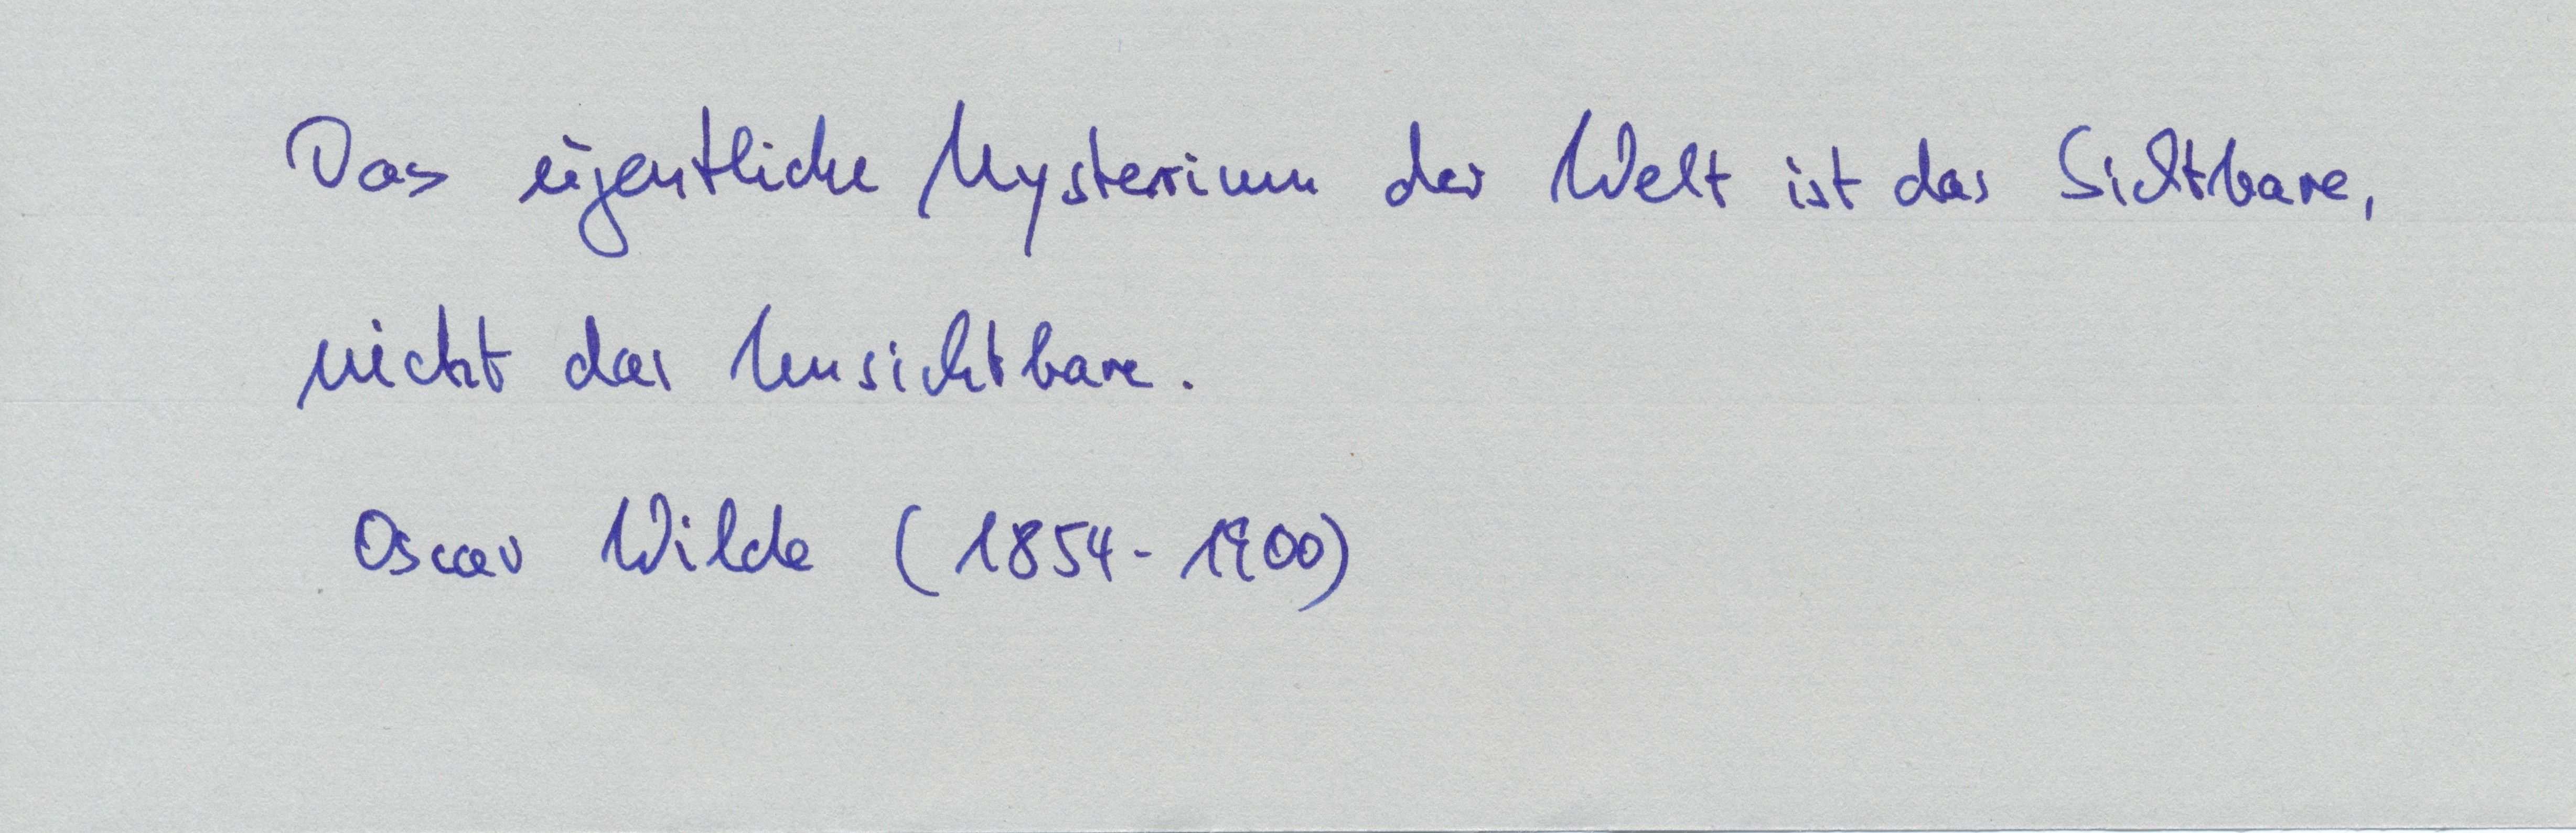 Das eigentliche Mysterium der Welt ist das Sichtbare,
nicht das Unsichtbare.
Oscar Wilde (1854-1900)